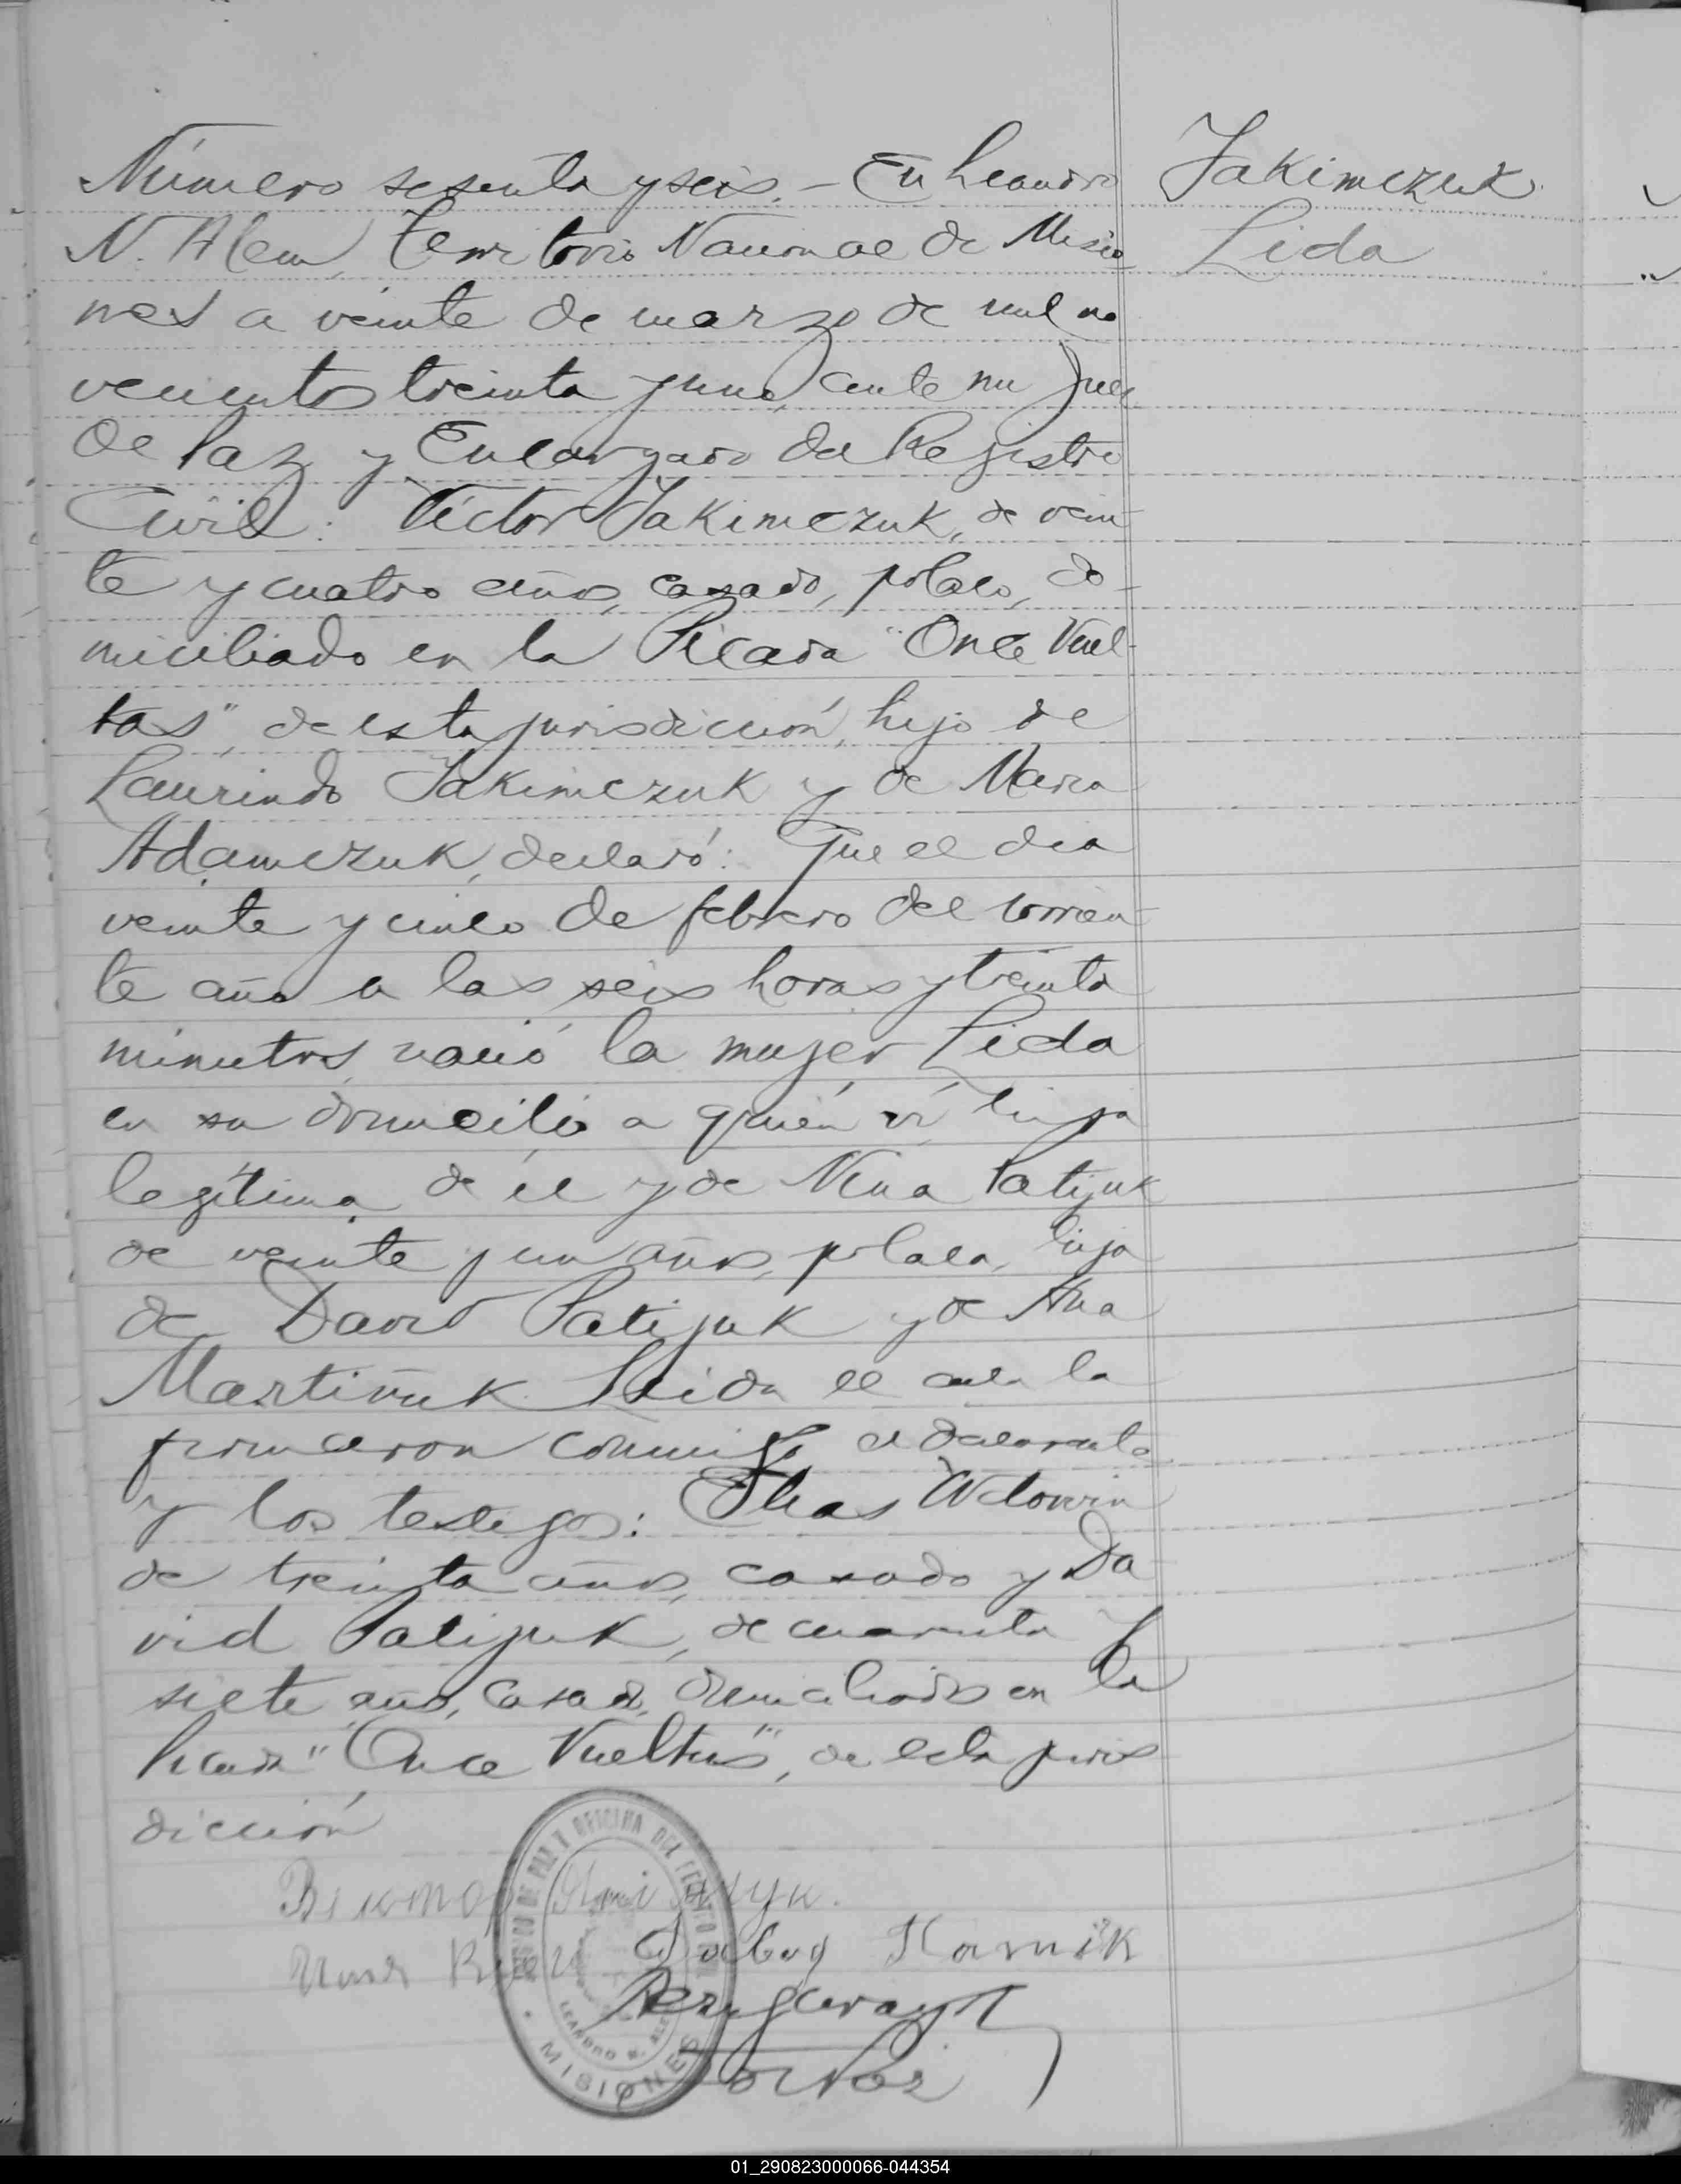 Número sesenta y seis. - En Leandro
N. Alem, Territorio Nacional de Misio
nes a veinte de marzo de mil no
vecientos treinta y uno, ante mi Juez
de Paz y Encargado del Registro
Civil: Víctor Jakimczuk, de vein
te y cuatro años, casado, polaco, do-
miciliado en la Picada "Once Vuel-
tas", de esta jurisdicción, hijo de
Laurindo Jakimczuk y de Maria
Adamczuk, declaró: Que el dia
veinte y cinco de febrero del corrien
te año a las seis horas y treinta
minutos nació la mujer Lida
en su domicilio a quién ví, hija
legítima de él y de Nina Patijuk
de veinte y un años, polaca, hija
de David Patijuk y de Ana
Martiñuk. Leida el acta la
firmaron conmigo el declarante
y los testigos: Elias
de treinta años, casado y Da
vid Patijuk, de cuarenta y
siete años, casado, domiciliados en la
Picada "Once Vueltas", de esta juris
dicción
Jakimczuk
Lida
MISIONES
01_290823000066-044354